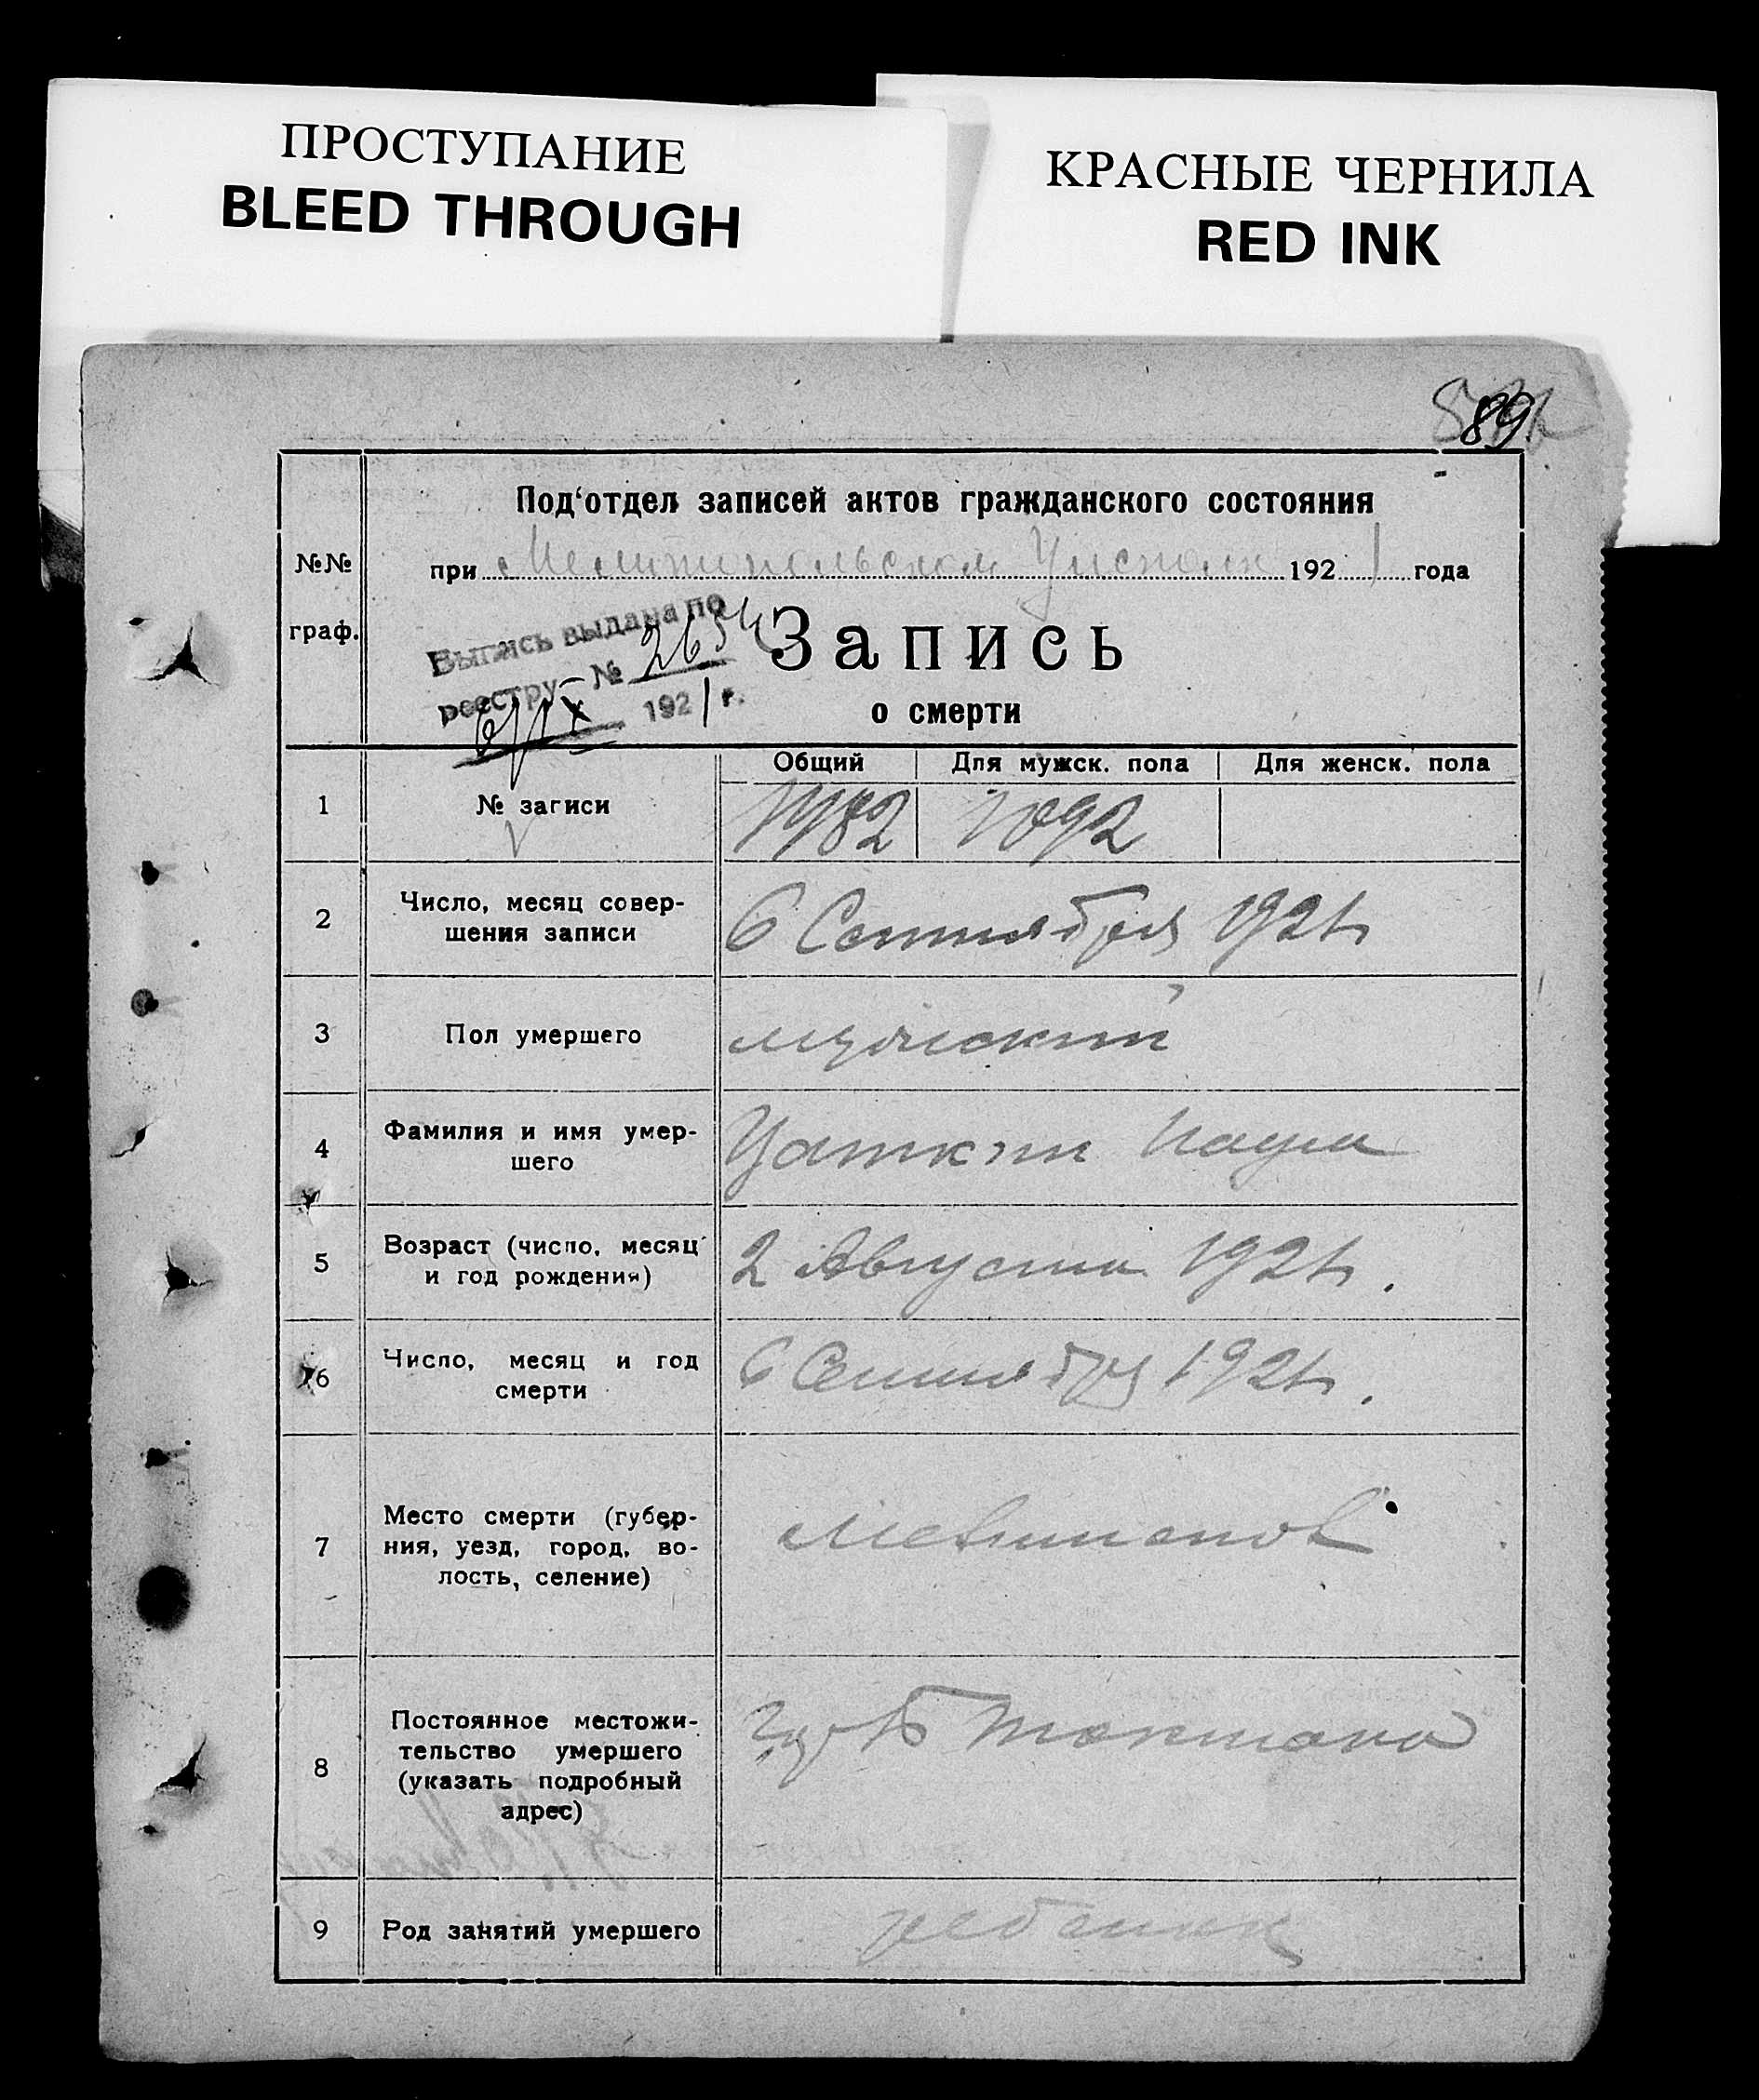 ПРОСТУПАНИЕ
BLEED THROUGH
КРАСНЫЕ ЧЕРНИЛА
RED INK
89.
Под‘отдел записей актов гражданского состояния
№№
граф.
при Мелитопольском Уисполк 1921 года
Выпись выдана по
реестру № 2654
1921 г.
Запись
о смерти
Общий Для мужск. пола Для женск. пола
1 № записи 1982 1092
2 Число, месяц совер-
шения записи 6 Сентября 1921 г.
3 Пол умершего мужской
4 Фамилия и имя умер-
шего Цаткин
5 Возраст (число, месяц
и год рождения) 2 Августа 1921 г.
6 Число, месяц и год
смерти 6 Сентября 1921 г.
7 Место смерти (губер-
ния, уезд, город, во-
лость, селение) Мелитополь
8 Постоянное местожи-
тельство умершего
(указать подробный
адрес) Б Токмак
9 Род занятий умершего ребенок